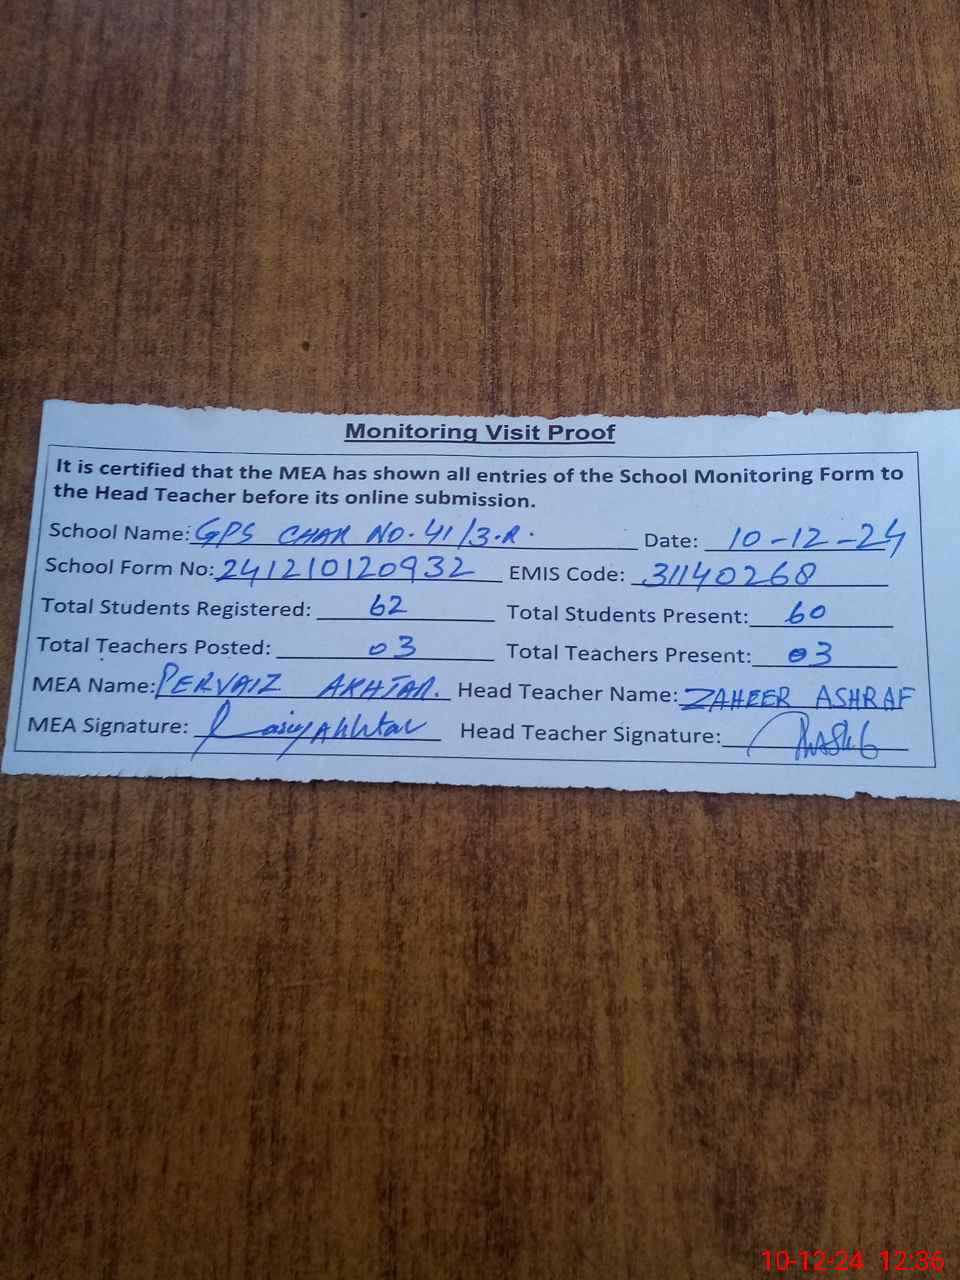 Monitoring Visit Proof
It is certified that the MEA has shown all entries of the School Monitoring Form to
the Head Teacher before its online submission.
School Name: GPS CHAK NO. 41/3.R. Date: 10-12-24
School Form No: 241210120932 EMIS Code: 31140268
Total Students Registered: 62 Total Students Present: 60
Total Teachers Posted: 03 Total Teachers Present: 03
MEA Name: PERVAIZ AKHTAR. Head Teacher Name: ZAHEER ASHRAF
MEA Signature: Akhtar Head Teacher Signature:
10-12-24 12:36